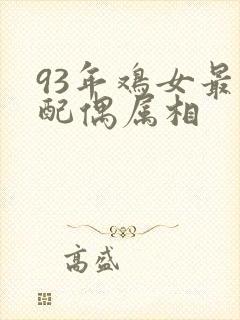 93年鸡女最
配偶属相
高盛